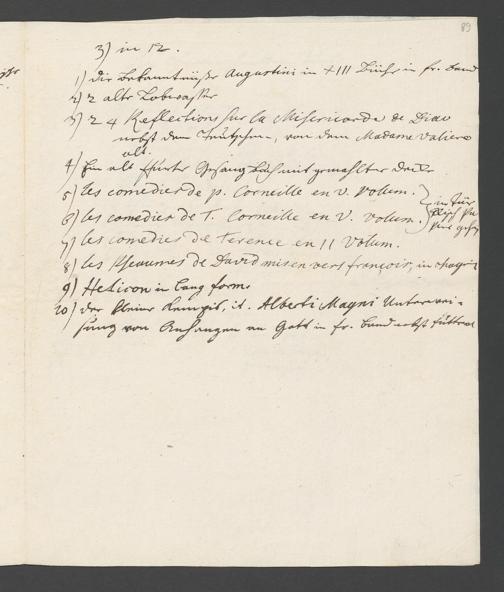 89
3) in 12.
1) Die Bekanntnüße Augustini in XIII Bücher in fr. band
2) 2 alte Lobwaßer
3) 24 Reflections sur la Misericorde de Dieu
nebst dem Teutschen, von dem Madame Valiere
4) Ein alt Gesang Buch mit gemahlter decke
5) les comedies de p. Corneille en V. Volum.
6) les comedies de T. Corneille en V. Volum. in für
7) les comedies de Terence en II Volum.
8) les Pseaumes de David mis en vers françois, in chagrin
9) Helicon in lang form
10) der kleine Kempis, it. Alberti Magni Unterwei-
sung von Anhangen an Gott in fr. band nebst futteral